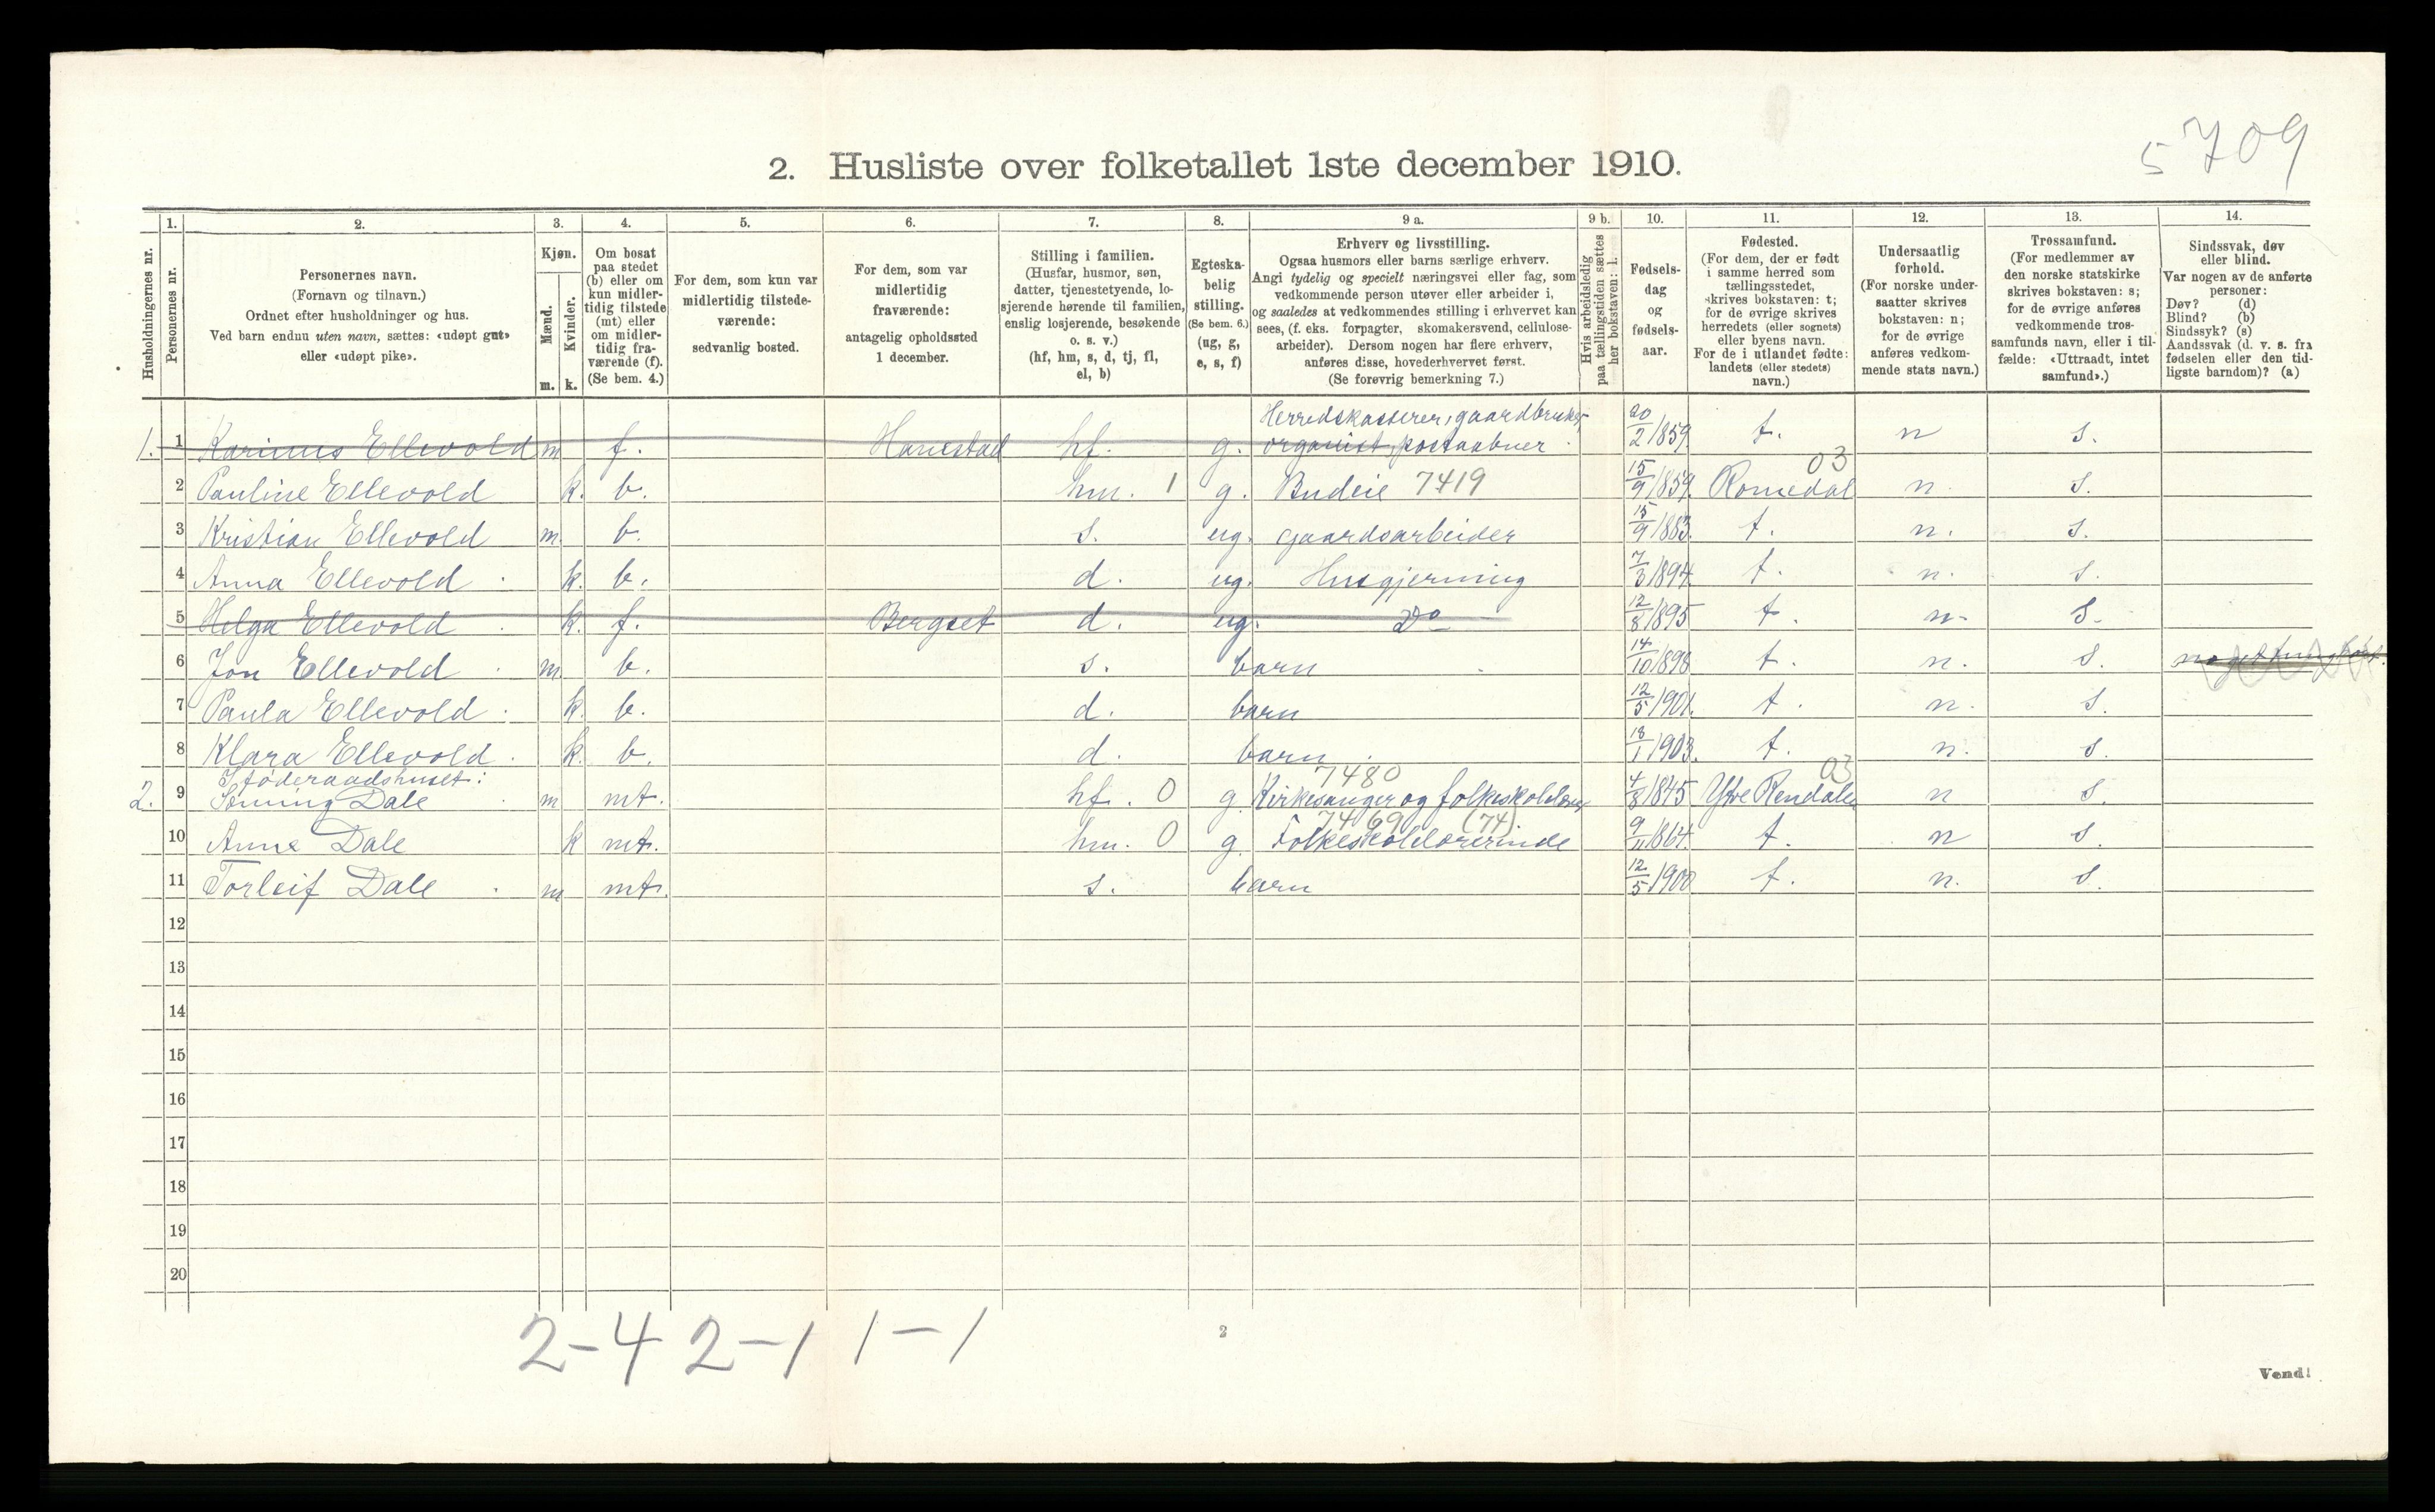 5709
2. Husliste over folketallet 1ste december 1910.
1. 2. 3. 4. 5. 6. 7. 8. 9 a. 9 b. 10. 11. 12. 13. 14.
Husholdningernes nr.
Personernes nr.
Personernes navn.
(Fornavn og tilnavn.)
Ordnet efter husholdninger og hus.
Ved barn endnu uten navn, sættes: «udøpt gut»
eller «udøpt pike».
Kjøn.
Mænd.
Kvinder.
m. k.
Om bosat
paa stedet
(b) eller om
kun midler-
tidig tilstede
(mt) eller
om midler-
tidig fra-
værende (f).
(Se bem. 4.)
For dem, som kun var
midlertidig tilstede-
værende:
sedvanlig bosted.
For dem, som var
midlertidig
fraværende:
antagelig opholdssted
1 december.
Stilling i familien.
(Husfar, husmor, søn,
datter, tjenestetyende, lo-
sjerende hørende til familien,
enslig losjerende, besøkende
o. s. v.)
(hf, hm, s, d, tj, fl,
el, b)
Egteska-
belig
stilling.
(Se bem. 6.)
(ug, g,
e, s, f)
Erhverv og livsstilling.
Ogsaa husmors eller barns særlige erhverv.
Angi tydelig og specielt næringsvei eller fag, som
vedkommende person utøver eller arbeider i,
og saaledes at vedkommendes stilling i erhvervet kan
sees, (f. eks. forpagter, skomakersvend, cellulose-
arbeider). Dersom nogen har flere erhverv,
anføres disse, hovederhvervet først.
(Se forøvrig bemerkning 7.)
Hvis arbeidsledig
paa tællingstiden sættes
her bokstaven: l.
Fødsels-
dag
og
fødsels-
aar.
Fødested.
(For dem, der er født
i samme herred som
tællingsstedet,
skrives bokstaven: t;
for de øvrige skrives
herredets (eller sognets)
eller byens navn.
For de i utlandet fødte:
landets (eller stedets)
navn.)
Undersaatlig
forhold.
(For norske under-
saatter skrives
bokstaven: n;
for de øvrige
anføres vedkom-
mende stats navn.)
Trossamfund.
(For medlemmer av
den norske statskirke
skrives bokstaven: s;
for de øvrige anføres
vedkommende tros-
samfunds navn, eller i til-
fælde: «Uttraadt, intet
samfund».)
Sindssvak, døv
eller blind.
Var nogen av de anførte
personer:
Døv? (d)
Blind? (b)
Sindssyk? (s)
Aandssvak (d. v. s. fra
fødselen eller den tid-
ligste barndom)? (a)
Herredskasserer, gaardbruker,
1. 1 Karinus Ellevold m f. Hanestad hf. g. organist, postaabner 20/2 1859 t. n s.
2 Pauline Ellevold k. b. hm. 1 g. Budeie 7419 15/9 1859. Romedal 03 n. s.
3 Kristian Ellevold m. b. s. ug. gaardsarbeider 15/9 1883. t. n. s.
4 Anna Ellevold k. b. d. ug. Husgjerning 7/3 1894. t. n. s.
5 Helga Ellevold k. f. Bergset d. ug. Do 12/8 1895 t. n. s.
6 Jon Ellevold m b. s. barn 14/10 1898 t. n. s.
7 Paula Ellevold k. b. d. barn 12/5 1901. t. n. s.
8 Klara Ellevold k. b. d. barn 18/1 1903. t. n. s.
I føderaadshuset: 7480 03
2. 9 Dale m mt. hf. 0 g. Kirkesanger og folkeskolelærer 4/8 1845 Ytre Rendalen n s.
7469 (74)
10 Anne Dale k mt. hm. 0 g. Folkeskolelærerinde 9/11 1864. t. n s.
11 Torleif Dale m mt. s. barn 12/5 1900 t. n. s.
12
13
14
15
16
17
18
19
20
2-4 2-1 1-1
2
Vend!